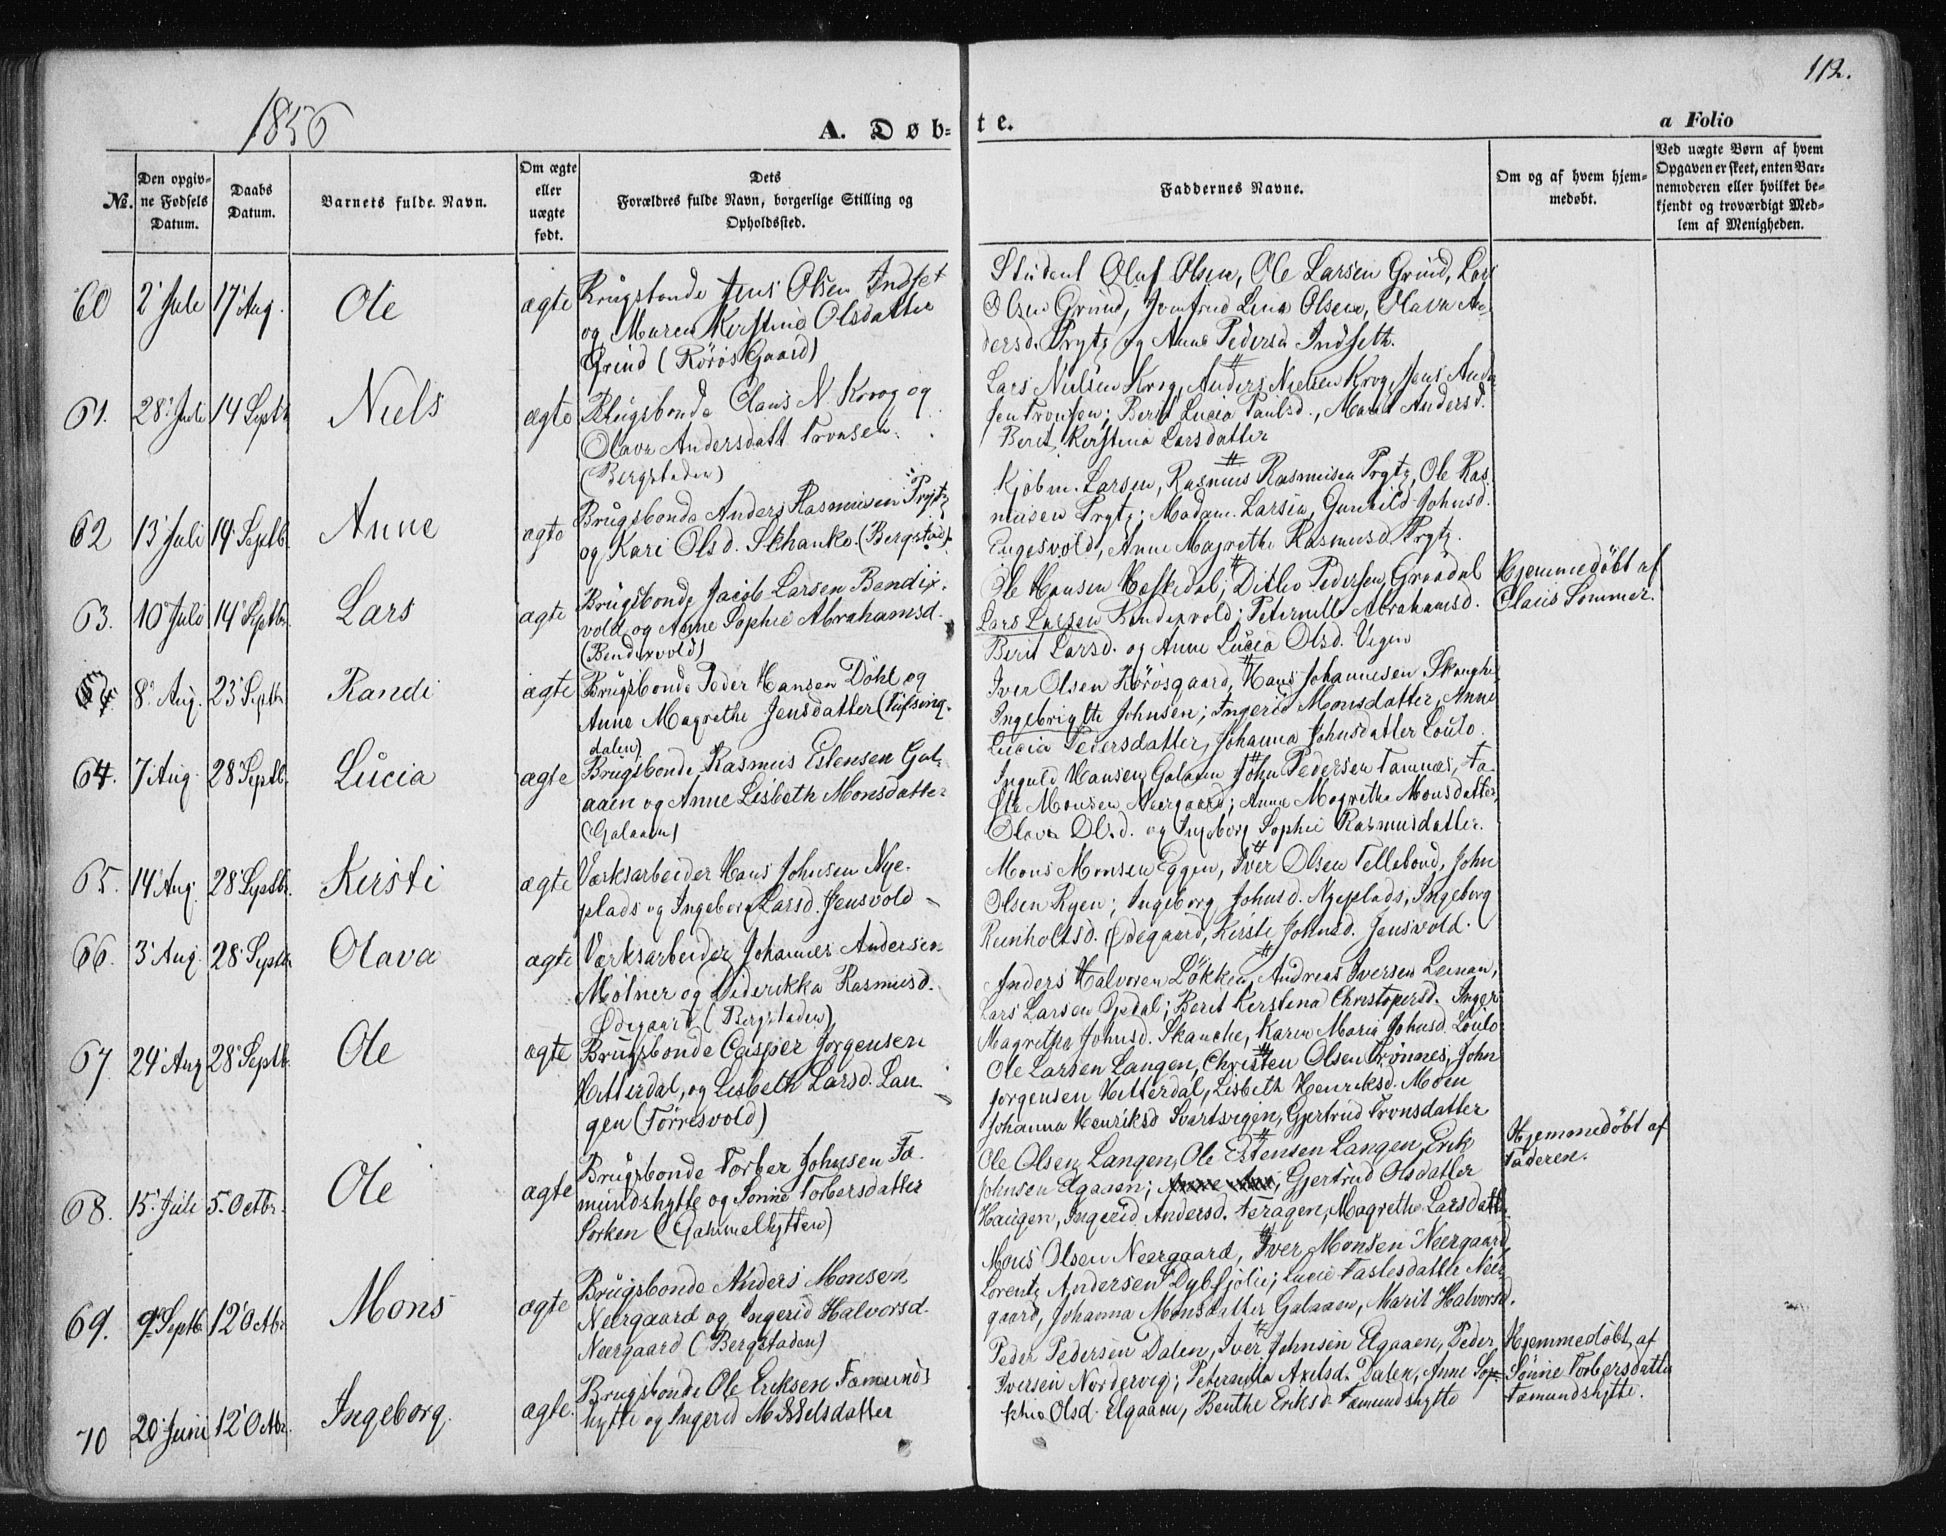 112.
1856
A. Døb-te.
a Folio
No.
Den opgivne Fødsels Datum.
Daabs Datum.
Barnets fulde Navn.
Om ægte eller uægte født.
Dets Forældres fulde Navn, borgerlige Stilling og Opholdssted.
Faddernes Navne.
Om og af hvem hjemmedøbt.
Ved uægte Børn af hvem Opgaven er skeet, enten Barnemoderen eller hvilket bekjendt og troværdigt Medlem af Menigheden.
60 2' Juli 17' Aug. Ole ægte
Brugsbonde Jens Olsen Indset
og Maren Kerstine Olsdatter
Grind (Rörös Gaard)
Student Oluf Olsen, Ole Larsen Grind, Lars
Olsen Grind, Jomfrue Lina Olsen, Olava An-
dersd. Prytz og Anne Pedersd. Indseth.
61. 28' Juli 14 Septb. Niels ægte
Brugsbonde Claus N. Krog og
Olava Andersdatt Tronsen
(Bergstaden)
Lars Nielsen Krog, Anders Nielsen Krog, Jens Ander
sen Tronsen; Berit Lucia Paulsd., Marit Andersd.
Berit Kerstina Larsdatter
62 13' Juli 14' Septb. Anne ægte
Brugsbonde Anders Rasmusen Prytz
og Kari Olsd. Skanke. (Bergstad)
Kjöbm. Larsen, Rasmus Rasmusen Prytz, Ole Ras
musen Prytz; Madam Larsen, Gunhild Johnsd.
Engesvold, Anne Magrethe Rasmusd Prytz.
63. 10' Juli 14' Septbr. Lars ægte
Brugsbonde Jacob Larsen Bendix-
vold og Anne Sophie Abrahamsd.
(Bendixvold)
Ole Hansen Heskedal; Ditlev Pedersen Graadal
Lars Larsen Bendixvold; Peternille Abrahamsd.
Berit Larsd. og Anne Lucia Olsd. Vigen
Hjemmedöbt af
Claus Sommer.
8' Aug. 23' Septbr Randi ægte
Brugsbonde Peder Hansen Döhl og
Anne Magrethe Jensdatter (Tufsing-
dalen)
Iver Olsen Rörosgaard, Hans Johannesen Skougheim
Ingebrigtte Johnsen; Ingerid Monsdatter, Anne
Lucia Pedersdatter, Johanna Johnsdatter Louso.
64. 7' Aug. 28' Septb. Lucia ægte
Brugsbonde Rasmus Estensen Gal-
aaen og Anne Lisbeth Monsdatter
(Galaaen)
Inguld Hansen Galaaen John Pedersen Tamnæs, Fa-
ste Monsen Neergaard; Anne Magrethe Monsdatter,
Olava Olsd. og Ingeborg Sophie Rasmusdatter.
65. 14' Aug. 28' Septbr. Kirsti ægte
Værksarbeider Hans Johnsen Nye-
plads og Ingeborg Larsd. Jensvold
Mons Monsen Eggen, Iver Olsen Tellebond, John
Olsen Ryen; Ingeborg Johnsd. Nyeplads, Ingeborg
Reinholtsd. Ødegaard, Kirste Johnsd. Jensvold.
66. 3' Aug. 28' Septbr. Olava ægte
Værksarbeider Johannes Andersen
Mölner og Diderikka Rasmusd.
Ødegaard (Bergstaden)
Anders Halvorsen Lökken, Andreas Iversen Leman,
Lars Larsen Opdal; Berit Kerstina Christopersd. Inger
Magretha Johnsd. Skanche, Karen Maria Johnsd Louso
67. 24' Aug 28' Septb. Ole ægte
Brugsbonde Casper Jorgensen
Hitterdal, og Lisbeth Larsd. Lan-
gen (Torresvold)
Ole Larsen Langen, Christen Olsen Trønnes, John
Jorgensen Hitterdal, Lisbeth Henriksd. Moen
Johanna Henriksd Svartvigen, Gjertrud Tronsdatter
68. 15' Juli 5. Octbr. Ole ægte
Brugsbonde Torber Johnsen Fæ-
mundshytte og Sönne Torbersdatter
Sorken (Gammelhytten)
Ole Olsen Langen, Ole Estensen Langen, Erik
Johnsen Elgaaen; Gjertrud Olsdatter
Haugen, Ingerid Andersd. Feragen, Magrethe Larsdatter
Hjemmedöbt af
Faderen.
69. 9' Septb 12' Octbr Mons ægte
Brugsbonde Anders Monsen
Neergaard og Ingerid Halvorsd.
Neergaard (Bergstaden)
Mons Olsen Neergaard, Iver Monsen Neergaard,
Lorentz Andersen Dybfjolie; Lucie Fastesdatter Neer-
gaard, Johanna Monsdatter Galaaen, Marit Halvorsd.
70 20' Juni 12' Octbr. Ingeborg. ægte.
Brugsbonde Ole Eriksen Fæmunds
hytte og Ingerid Mikkelsdatter
Peder Pedersen Dalen, Iver Johnsen Elgaaen, Peder
Iversen Nordervig; Peternilla Axelsd. Dalen, Anne Sop-
phia Olsd. Elgaaen, Benthe Eriksd. Fæmundshytte
Hjemmedöbt, af
Sönne Torbersdatter
Fæmundshytte.